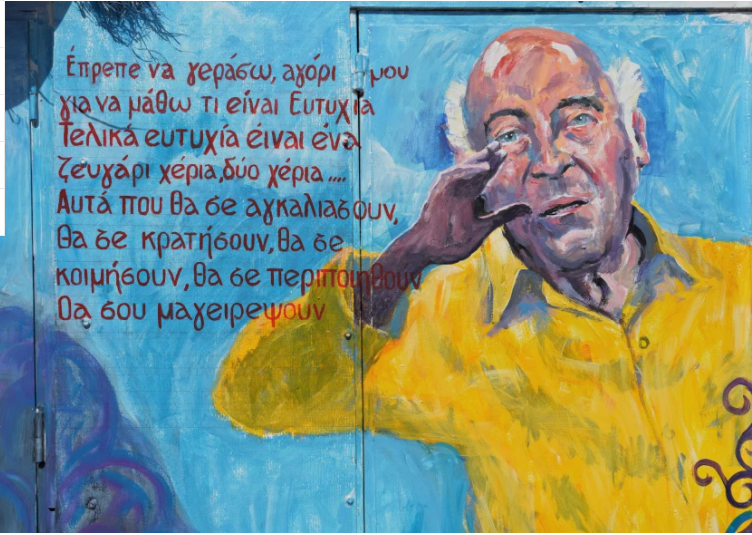 Έπρεπε να γεράσω, αγόρι μου
για να μάθω τι είναι Ευτυχία
Τελικά ευτυχία έιναι ένα
ζευγάρι χέρια, δύο χέρια ....
Αυτά που θα σε αγκαλιάσουν,
θα σε κρατήσουν, θα σε
κοιμήσουν, θα σε περιποιηθούν
θα σου μαγειρεψουν